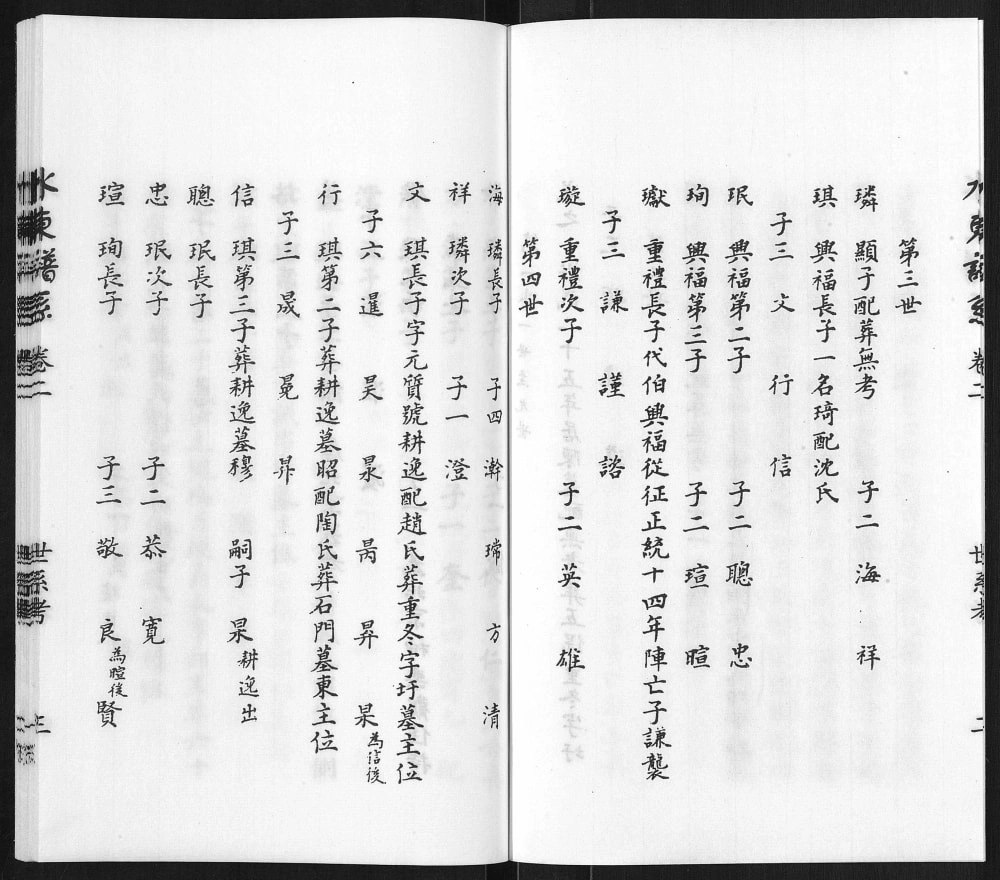 水東譜系 卷二 世系考 二
第三世
璘 顯子配葬無考 子二 海 祥
琪 興福長子一名琦配沈氏
子三 文 行 信
珉 興福第二子 子二 聰 忠
珣 興福第三子 子二 瑄 暄
瓛 重禮長子代伯興福從征正統十四年陣亡子謙襲
子三 謙 謹 諮
璇 重禮次子 子二 英 雄
第四世
海 璘長子 子四 瀚 瑺 方 清
祥 璘次子 子一 澄
文 琪長子字元質號耕逸配趙氏葬重冬字圩墓主位
子六 暹 昊 杲 昺 昇 杲為信後
行 琪第二子葬耕逸墓昭配陶氏葬石門墓東主位
子三 晟 冕 昇
信 琪第三子葬耕逸墓穆 嗣子 杲耕逸出
聰 珉長子
忠 珉次子 子二 恭 寬
瑄 珣長子 子三 敬 良為暄後 賢
水東譜系 卷二 世系考 三